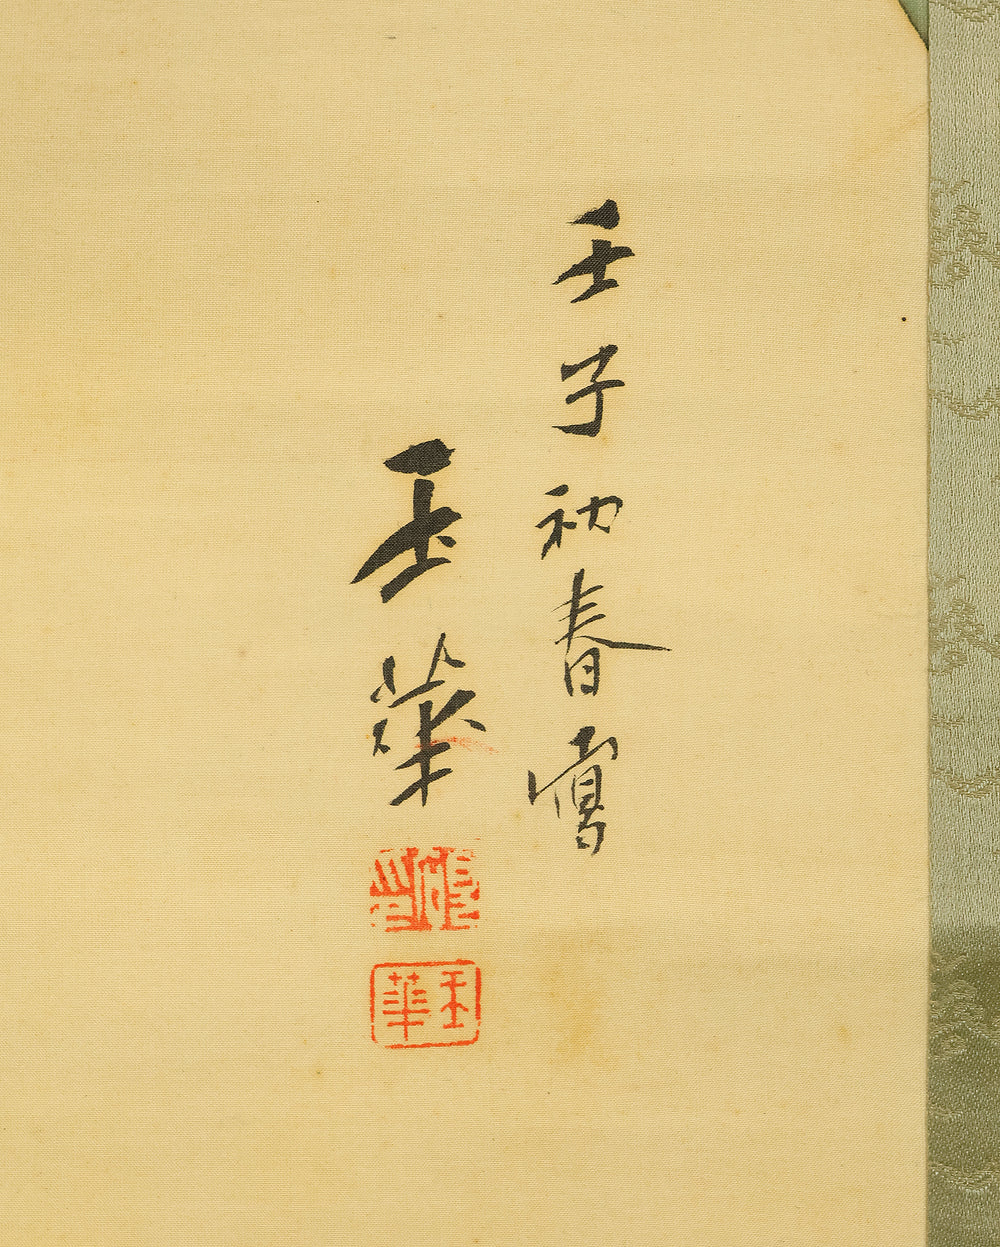 壬子初春寫
玉華
玉華